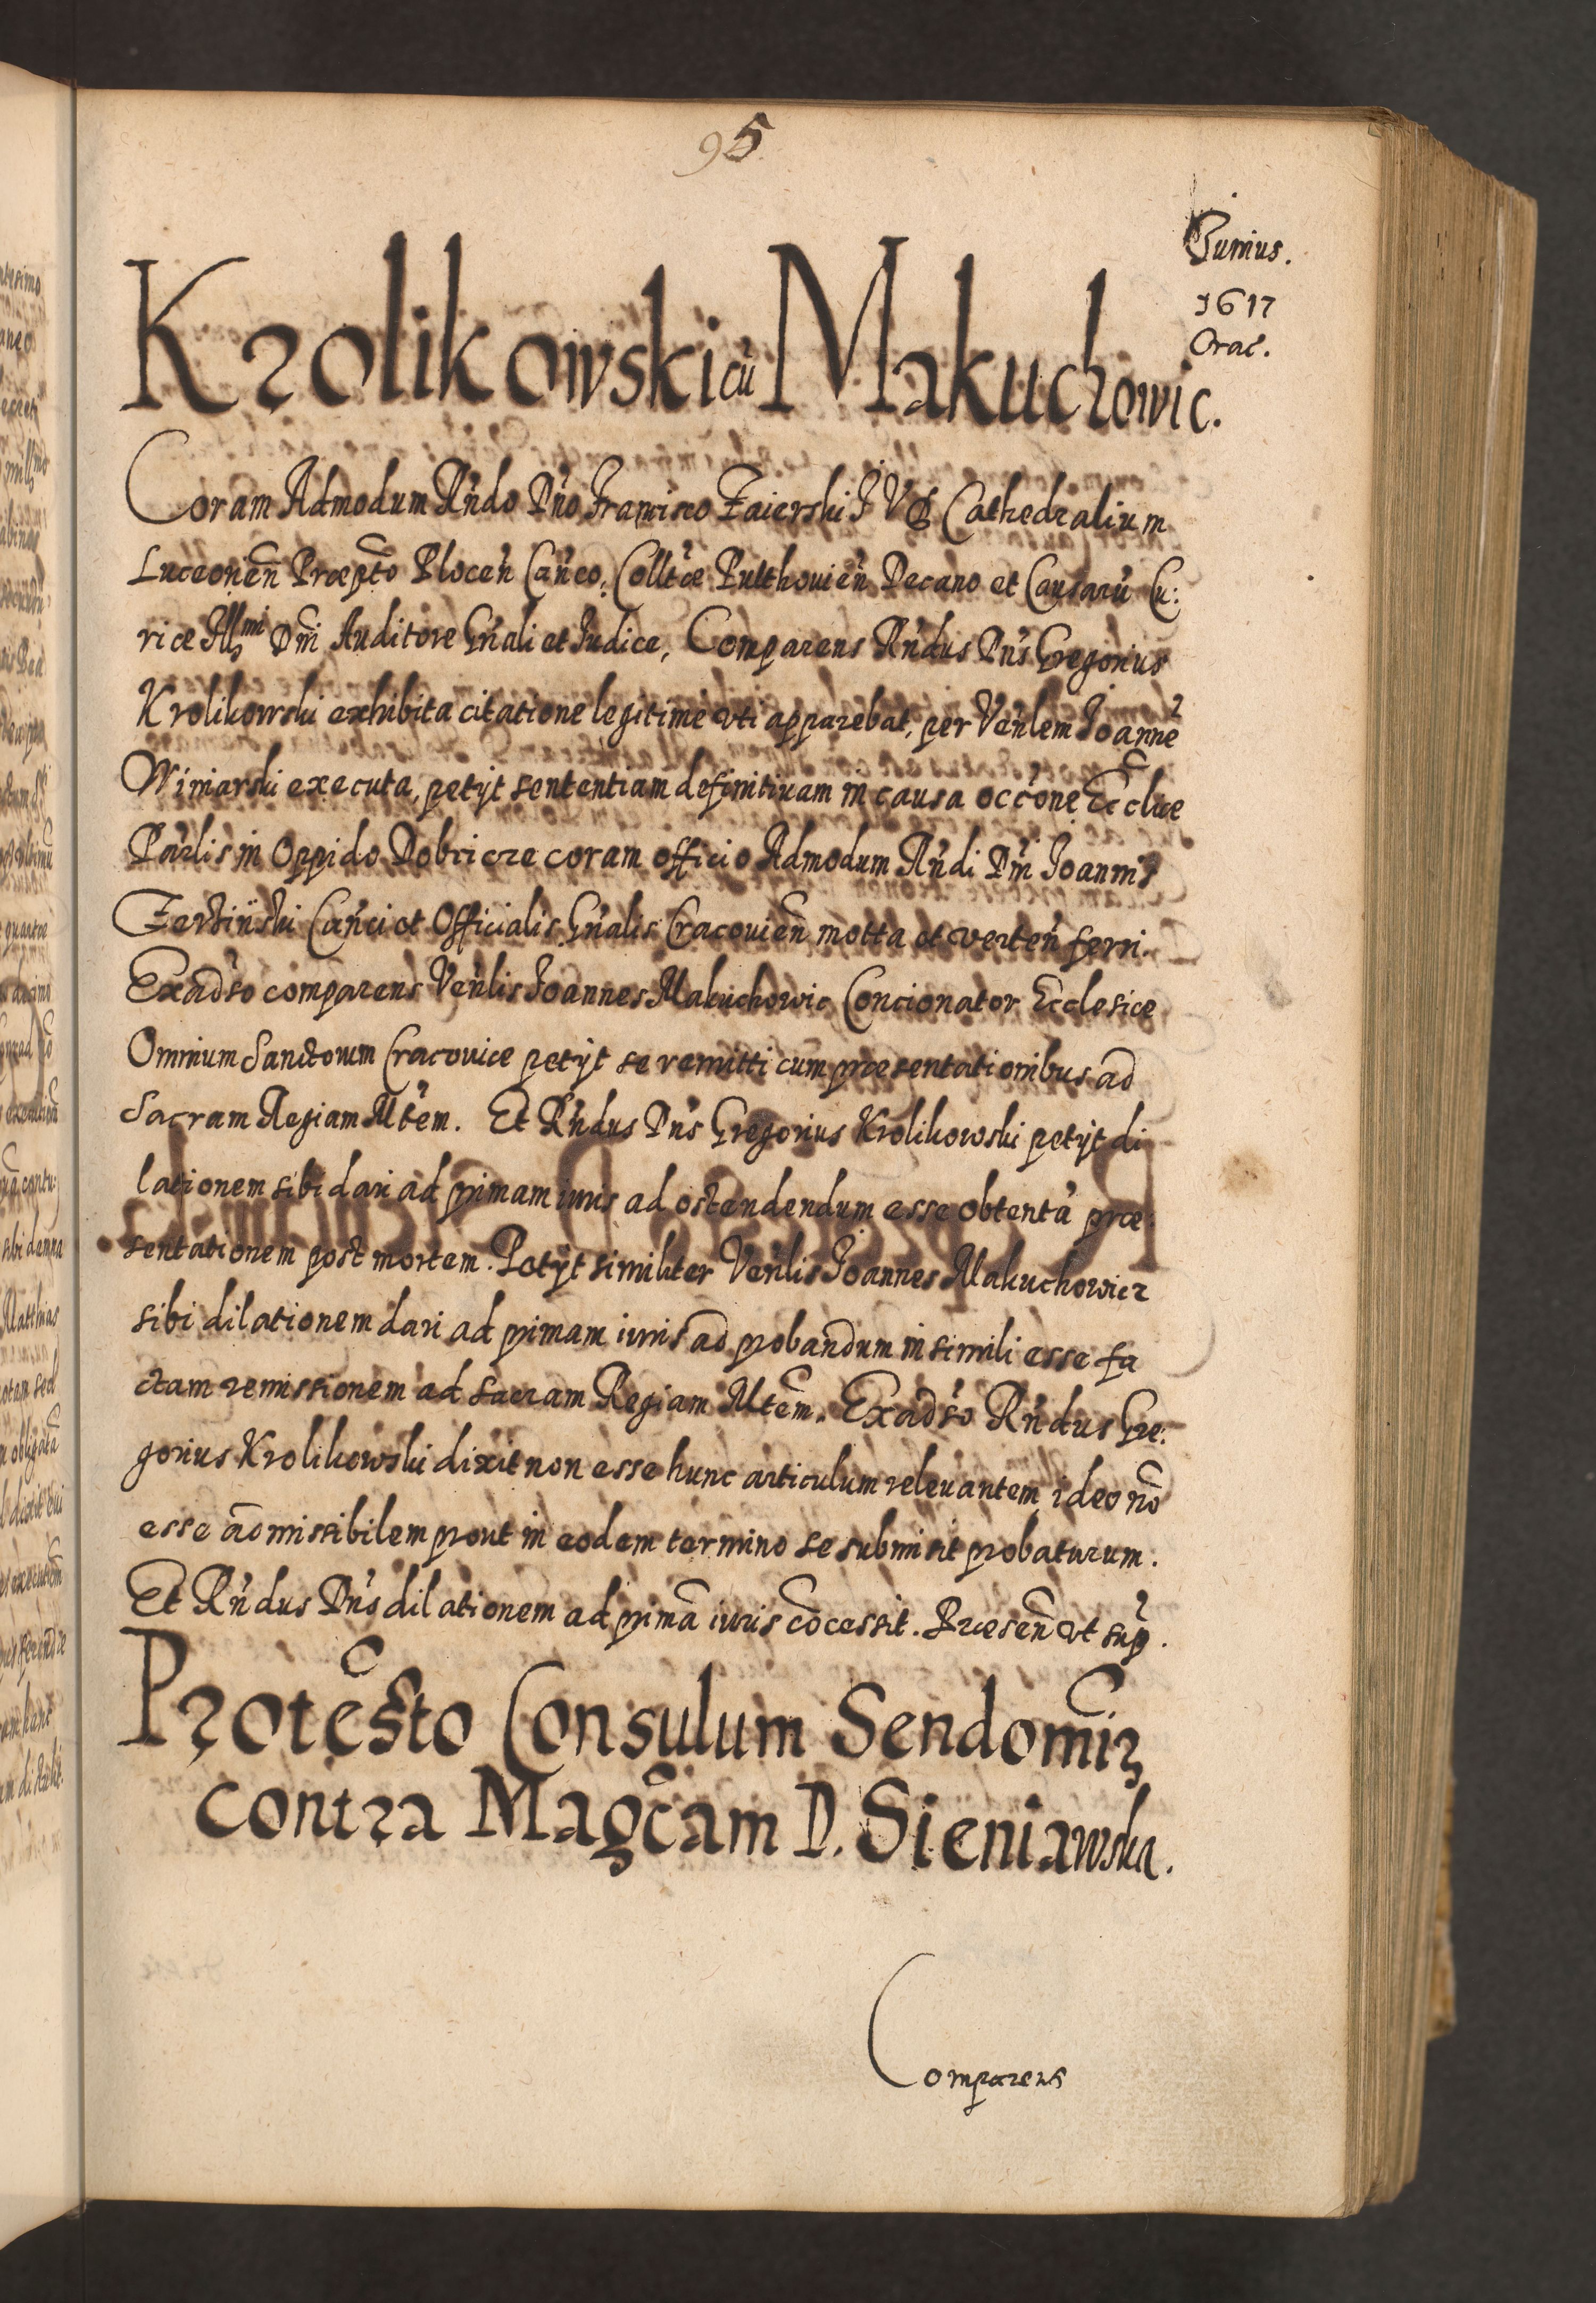 95
Junius.
1617
Crac.
Krolikowski cū Makuchowic.
Coram Admodum Rn̄do Dn̄o Francisco Zaierski J V D Cathedralium
Luceoneñ Præpt̄o Plocen̄ Can̄co, Collt̄æ Pulthouien̄ Decano et Causarū Cu:
riæ Illmi Dn̄i Auditore Gn̄ali et Judice, Comparens Rn̄dus Dn̄s Gregorius
Krolikowski exhibita citatione legitime vti apparebat, per Ven̄lem Joannē
Winiarski executa, petijt sententiam definitiuam in causa occ̄one Eccl̄iæ
Par̄lis in Oppido Dobricze coram officio Admodum Rn̄di Dn̄i Joannis
Can̄ci et Officialis Gn̄alis Cracouien̄ motta et verten̄ ferri.
Exad̄so comparens Ven̄lis Joannes Makuchowic Concionator Ecclesiæ
Omnium Sanctorum Cracouiæ petijt se remitti cum præsentationibus ad
Sacram Regiam Mt̄em. Et Rn̄dus Dn̄s Gregorius Krolikowski petijt di
lationem sibi dari ad primam iuris ad ostendendum esse obtentā præ:
sentationem post mortem. Petijt similiter Ven̄lis Joannes Makuchowicz
sibi dilationem dari ad primam iuris ad probandum in simili esse fa
ctam remissionem ad Sacram Regiam Mt̄em. Exad̄so Rn̄dus Gre:
gorius Krolikowski dixit non esse hunc articulum releuantem, ideo nō
esse admissibilem prout in eodem termino se submisit probaturum.
Et Rn̄dus Dn̄s dilationem ad primā iuris cōcessit. Præsen̄ vt sup̄.
Protesto Consulum Sendomir
contra Magcam D. Sieniawska.
Comparens